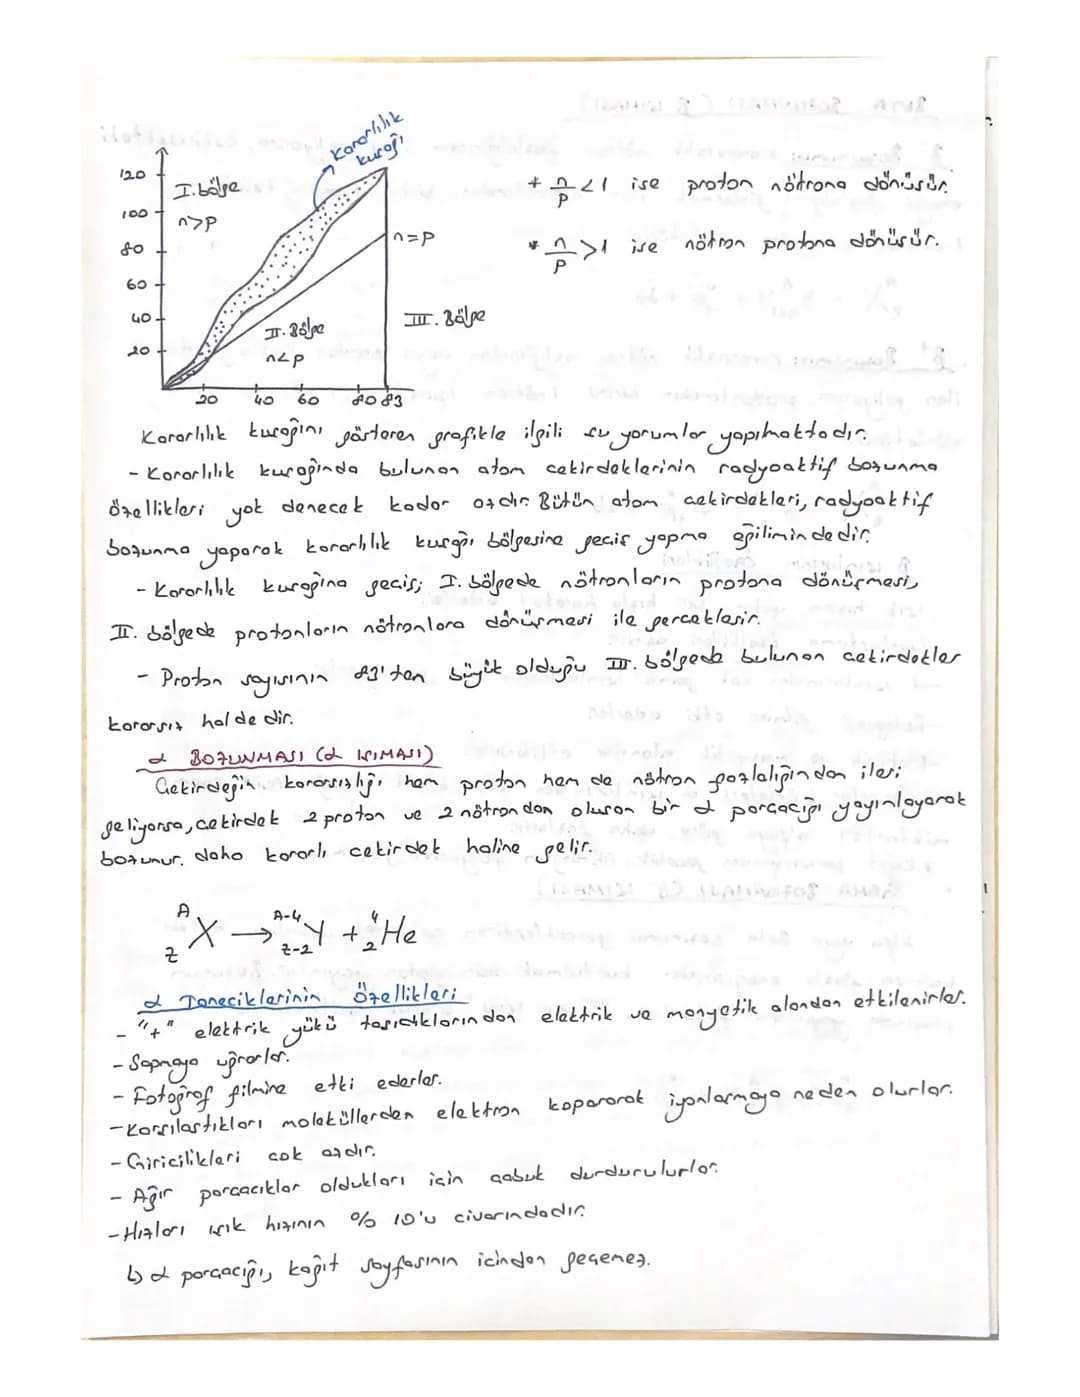 Kararlılık
kuşağı
120
100
80
60
40
20
I. bölge
n>p
n=p
II. Bölge
n<p
III. Bölge
20 40 60 80 83
* n/p <1 ise proton nötrona dönüşür.
* n/p >1 ise nötron protona dönüşür.
Kararlılık kuşağını gösteren grafikle ilgili şu yorumlar yapılmaktadır.
- Kararlılık kuşağında bulunan atom çekirdeklerinin radyoaktif bozunma
özellikleri yok denecek kadar azdır. Bütün atom çekirdekleri, radyoaktif
bozunma yaparak kararlılık kuşağı bölgesine geçiş yapma eğilimindedir.
- Kararlılık kuşağına geçiş; I. bölgede nötronların protona dönüşmesi,
II. bölgede protonların nötronlara dönüşmesi ile gerçekleşir.
- Proton sayısının 83'ten büyük olduğu III. bölgede bulunan çekirdekler
kararsız haldedir.
α BOZUNMASI (α IŞIMASI)
Çekirdeğin kararsızlığı hem proton hem de nötron fazlalığından ileri
geliyorsa, çekirdek 2 proton ve 2 nötrondan oluşan bir α parçacığı yayınlayarak
bozunur. daha kararlı çekirdek haline gelir.
ᴬ_Z X → ᴬ⁻⁴_Z-2 Y + ⁴₂He
α Taneciklerinin Özellikleri
- "+" elektrik yükü taşıdıklarından elektrik ve manyetik alandan etkilenirler.
- Sapmaya uğrarlar.
- Fotoğraf filmine etki ederler.
- Karşılaştıkları moleküllerden elektron kopararak iyonlaşmaya neden olurlar.
- Giricilikleri çok azdır.
- Ağır parçacıklar oldukları için çabuk durdurulurlar.
- Hızları ışık hızının % 10'u civarındadır.
↳ α parçacığı, kağıt sayfasının içinden geçemez.